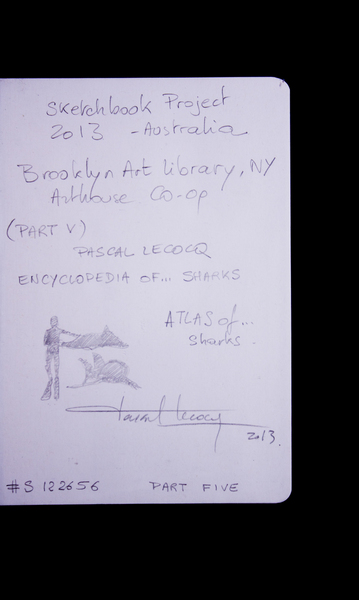 Sketchbook Project
2013 - Australia
Brooklyn Art Library, NY
Arthouse Co-op
(PART V)
PASCAL LECOCQ
ENCYCLOPEDIA OF... SHARKS
ATLAS of...
sharks.
Pascal Lecocq
2013.
#S 122656 PART FIVE